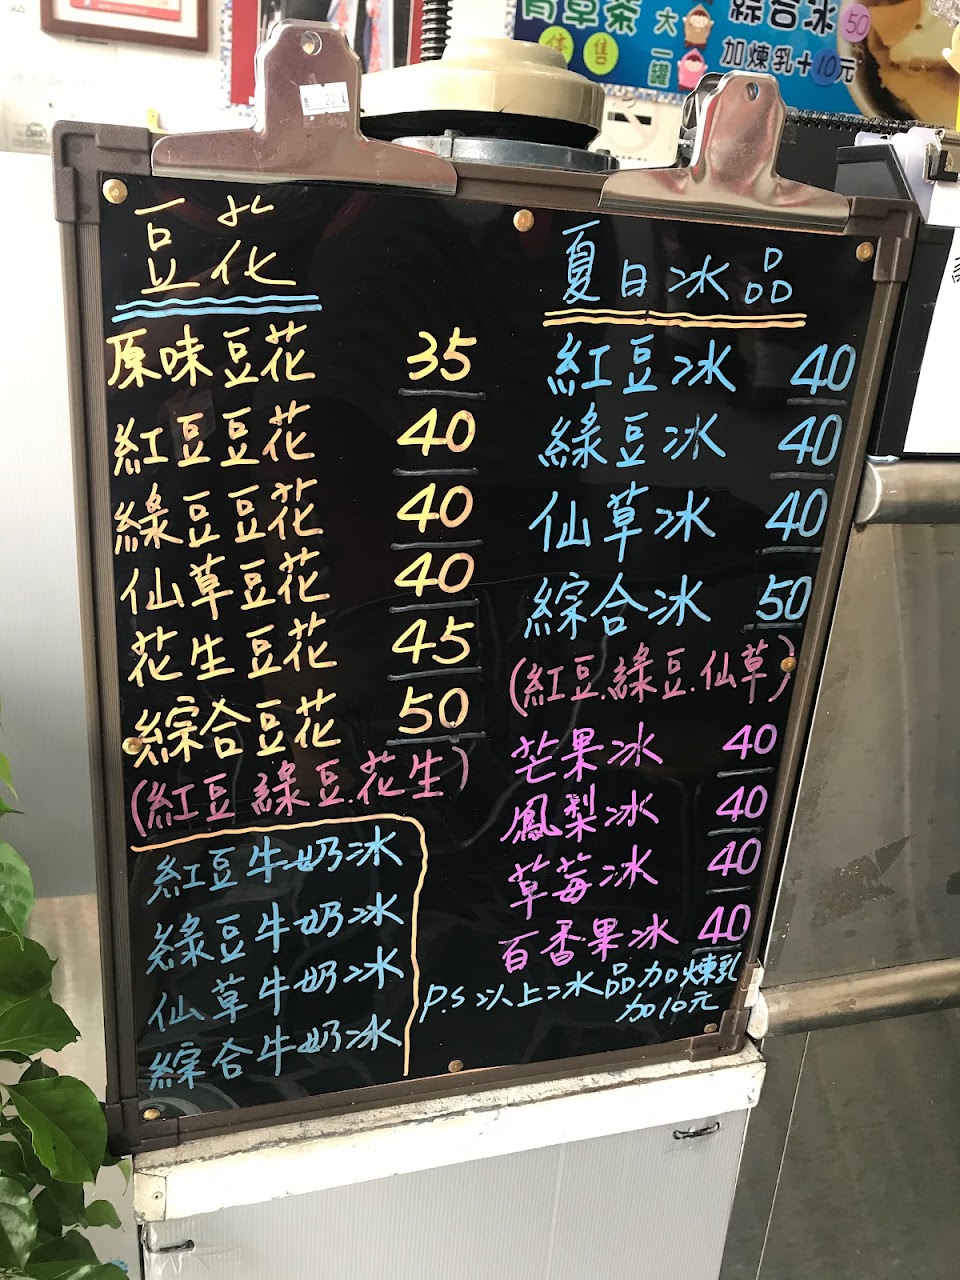 青草茶 大 綜合冰 50
售 一
罐 加煉乳+10元
豆花
原味豆花 35
紅豆豆花 40
綠豆豆花 40
仙草豆花 40
花生豆花 45
綜合豆花 50
(紅豆綠豆.花生)
紅豆牛奶冰
綠豆牛奶冰
仙草牛奶冰
綜合牛奶冰
夏日冰品
紅豆冰 40
綠豆冰 40
仙草冰 40
綜合冰 50
(紅豆.綠豆.仙草)
芒果冰 40
鳳梨冰 40
草莓冰 40
百香果冰 40
P.S以上冰品加煉乳
加10元